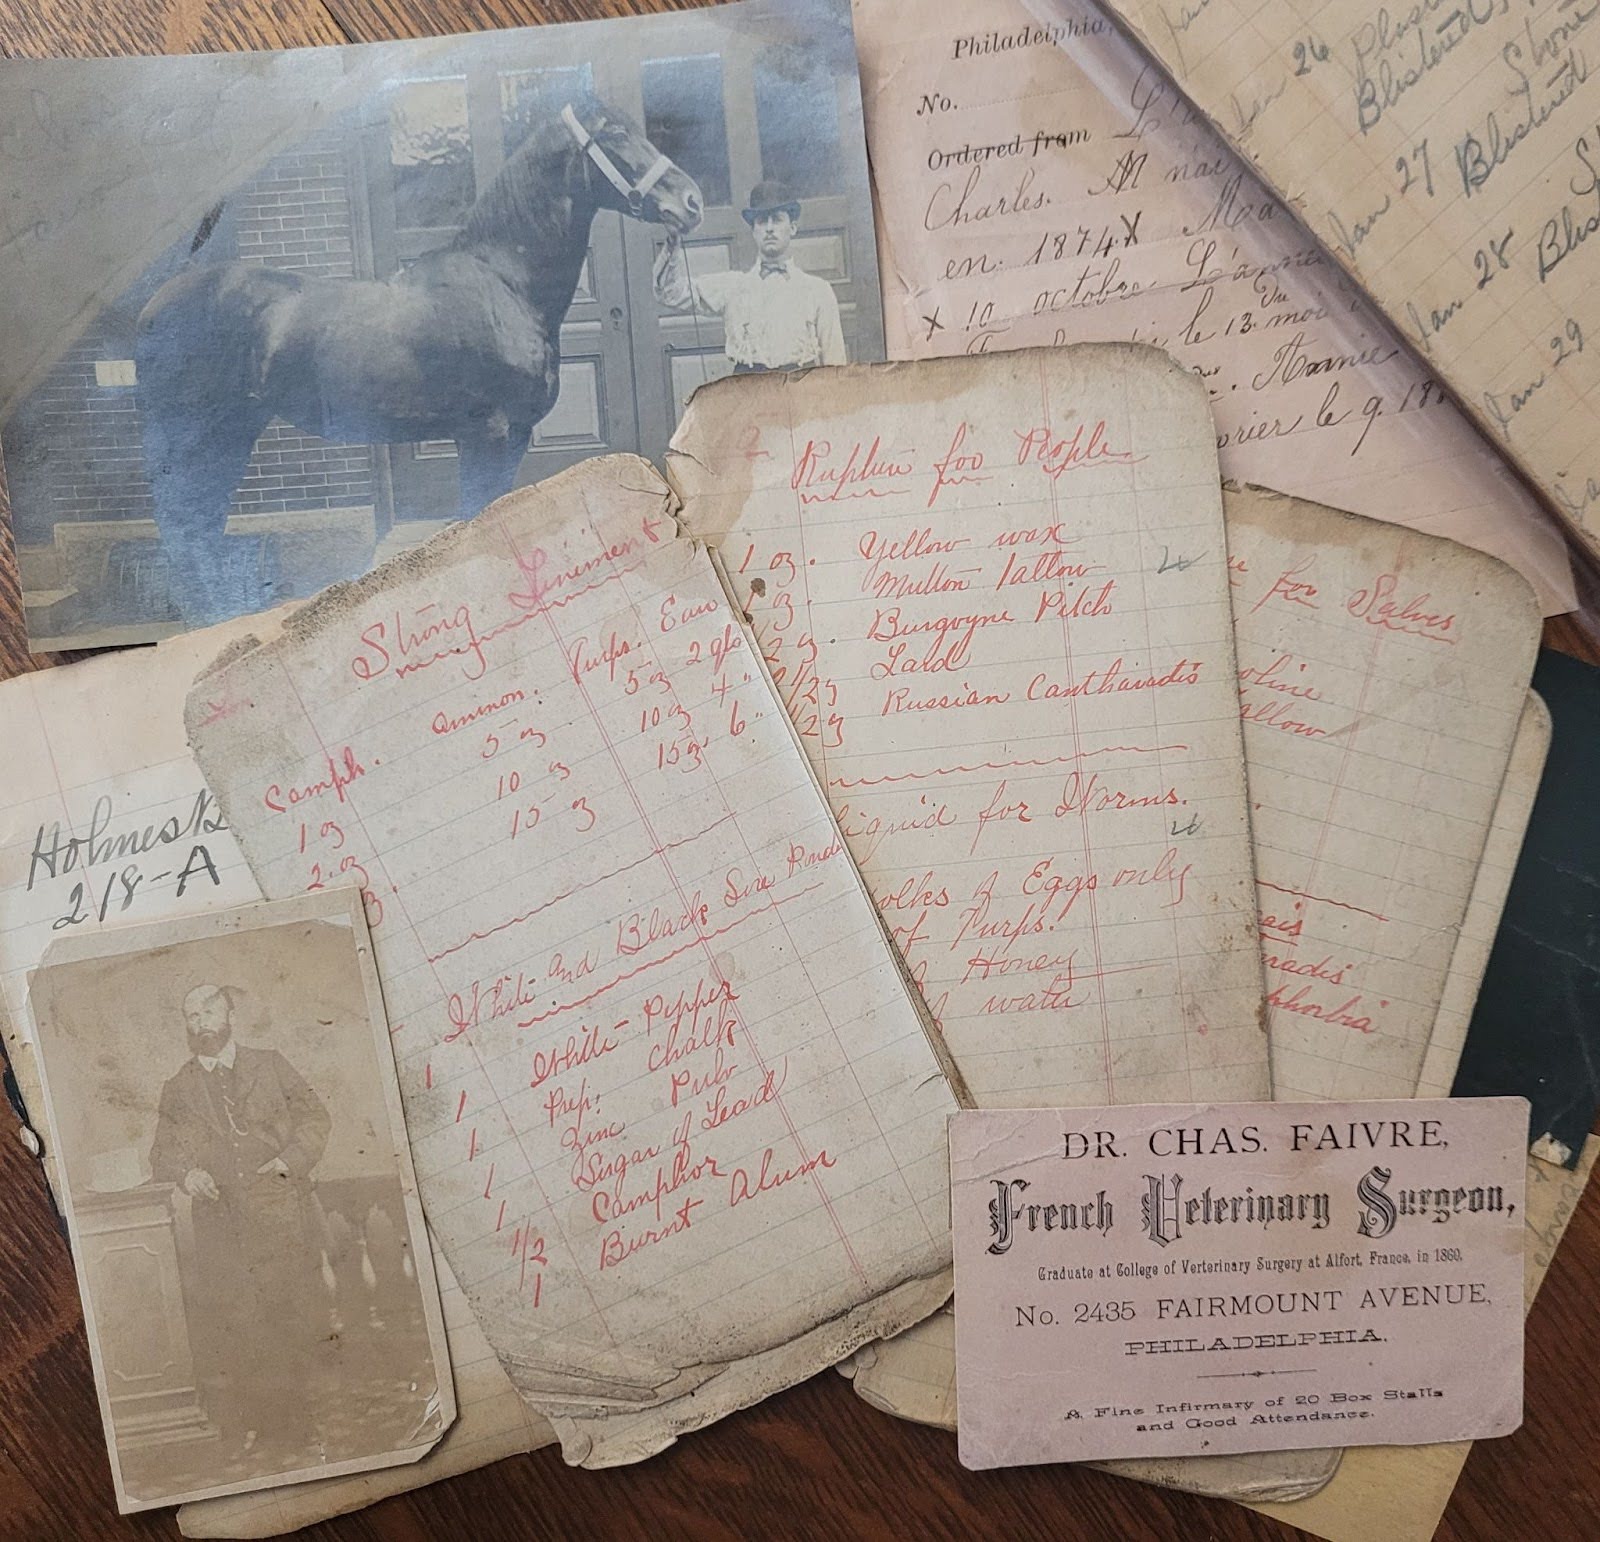 Philadelphia,
No.
Ordered from L'a
Charles.
en. 1874 X Ma
X 10 octobre L'année
le 13. moi
Du
Annie
vrier le 9. 18
Jan 26
Blistered
Jan 27 Blistered
Jan 28 Blis
Jan 29
Holmes
218-A
Strong Liniment
Camph. Ammon. Turps. Eau
1 oz 5 oz 5 oz 2 qts
2. oz 10 oz 10 oz 4 "
3 15 oz 15 oz 6 "
White and Black Sore
1 White Pepper
1 Prep. Chalk
1 Zinc Pulv
1 Sugar of Lead
1 Camphor
1/2 Burnt Alum
1
2
Rupture for People.
1 oz. Yellow wax
1 oz. Mutton Tallow
2 oz. Burgoyne Pitch
2 1/2 oz Lard
1/2 oz Russian Cantharadis
Liquid for Worms.
olks of Eggs only
of Turps.
Honey
water
for Salves
oline
allow
ais
radis
phorbia
DR. CHAS. FAIVRE,
French Veterinary Surgeon,
Graduate at College of Verterinary Surgery at Alfort, France, in 1860.
No. 2435 FAIRMOUNT AVENUE,
PHILADELPHIA.
A Fine Infirmary of 20 Box Stalls
and Good Attendance.